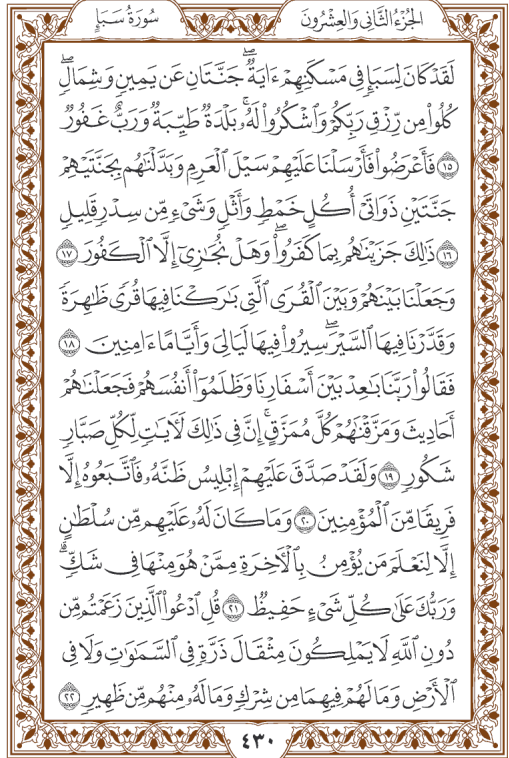 الجزء الثاني والعشرون
سورة سبإ
لَقَدْ كَانَ لِسَبَإٍ فِي مَسْكَنِهِمْ ءَايَةٌ ۖ جَنَّتَانِ عَن يَمِينٍ وَشِمَالٍ ۖ
كُلُوا۟ مِن رِّزْقِ رَبِّكُمْ وَٱشْكُرُوا۟ لَهُۥ ۚ بَلْدَةٌ طَيِّبَةٌ وَرَبٌّ غَفُورٌ
١٥ فَأَعْرَضُوا۟ فَأَرْسَلْنَا عَلَيْهِمْ سَيْلَ ٱلْعَرِمِ وَبَدَّلْنَـٰهُم بِجَنَّتَيْهِمْ
جَنَّتَيْنِ ذَوَاتَىْ أُكُلٍ خَمْطٍ وَأَثْلٍ وَشَىْءٍ مِّن سِدْرٍ قَلِيلٍ
١٦ ذَٰلِكَ جَزَيْنَـٰهُم بِمَا كَفَرُوا۟ ۖ وَهَلْ نُجَـٰزِىٓ إِلَّا ٱلْكَفُورَ ١٧
وَجَعَلْنَا بَيْنَهُمْ وَبَيْنَ ٱلْقُرَى ٱلَّتِى بَـٰرَكْنَا فِيهَا قُرًى ظَـٰهِرَةً
وَقَدَّرْنَا فِيهَا ٱلسَّيْرَ ۖ سِيرُوا۟ فِيهَا لَيَالِىَ وَأَيَّامًا ءَامِنِينَ ١٨
فَقَالُوا۟ رَبَّنَا بَـٰعِدْ بَيْنَ أَسْفَارِنَا وَظَلَمُوٓا۟ أَنفُسَهُمْ فَجَعَلْنَـٰهُمْ
أَحَادِيثَ وَمَزَّقْنَـٰهُمْ كُلَّ مُمَزَّقٍ ۚ إِنَّ فِى ذَٰلِكَ لَـَٔايَـٰتٍ لِّكُلِّ صَبَّارٍ
شَكُورٍ ١٩ وَلَقَدْ صَدَّقَ عَلَيْهِمْ إِبْلِيسُ ظَنَّهُۥ فَٱتَّبَعُوهُ إِلَّا
فَرِيقًا مِّنَ ٱلْمُؤْمِنِينَ ٢٠ وَمَا كَانَ لَهُۥ عَلَيْهِم مِّن سُلْطَـٰنٍ
إِلَّا لِنَعْلَمَ مَن يُؤْمِنُ بِٱلْـَٔاخِرَةِ مِمَّنْ هُوَ مِنْهَا فِى شَكٍّ ۗ
وَرَبُّكَ عَلَىٰ كُلِّ شَىْءٍ حَفِيظٌ ٢١ قُلِ ٱدْعُوا۟ ٱلَّذِينَ زَعَمْتُم مِّن
دُونِ ٱللَّهِ لَا يَمْلِكُونَ مِثْقَالَ ذَرَّةٍ فِى ٱلسَّمَـٰوَٰتِ وَلَا فِى
ٱلْأَرْضِ وَمَا لَهُمْ فِيهِمَا مِن شِرْكٍ وَمَا لَهُۥ مِنْهُم مِّن ظَهِيرٍ ٢٢
٤٣٠